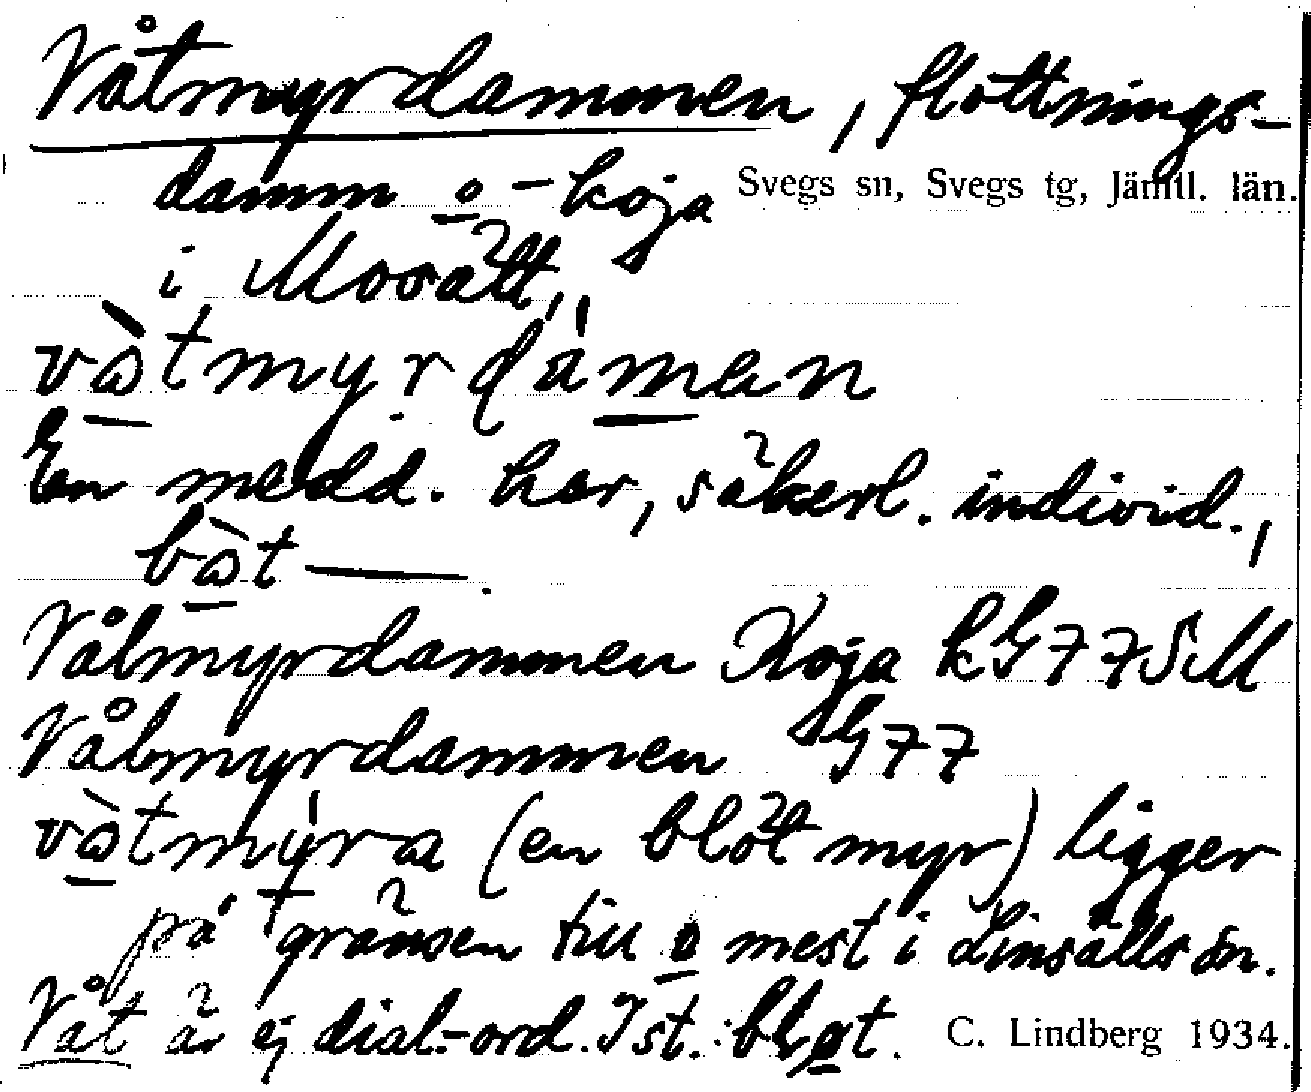 Våtmyrdammen, flottnings-
damm o -koja Svegs sn, Svegs tg, Jämtl. län.
i Morätt,
vàtmyrdámen
En medd. har, säkerl. individ.,
bàt —.
Våtmyrdammen Koja kG77SM
Våtmyrdammen G77
vàtmýra (en blöt myr) ligger
på gränsen till o mest i Linsälls sn.
Våt är ej dial.-ord. I st. : bløt. C. Lindberg 1934.